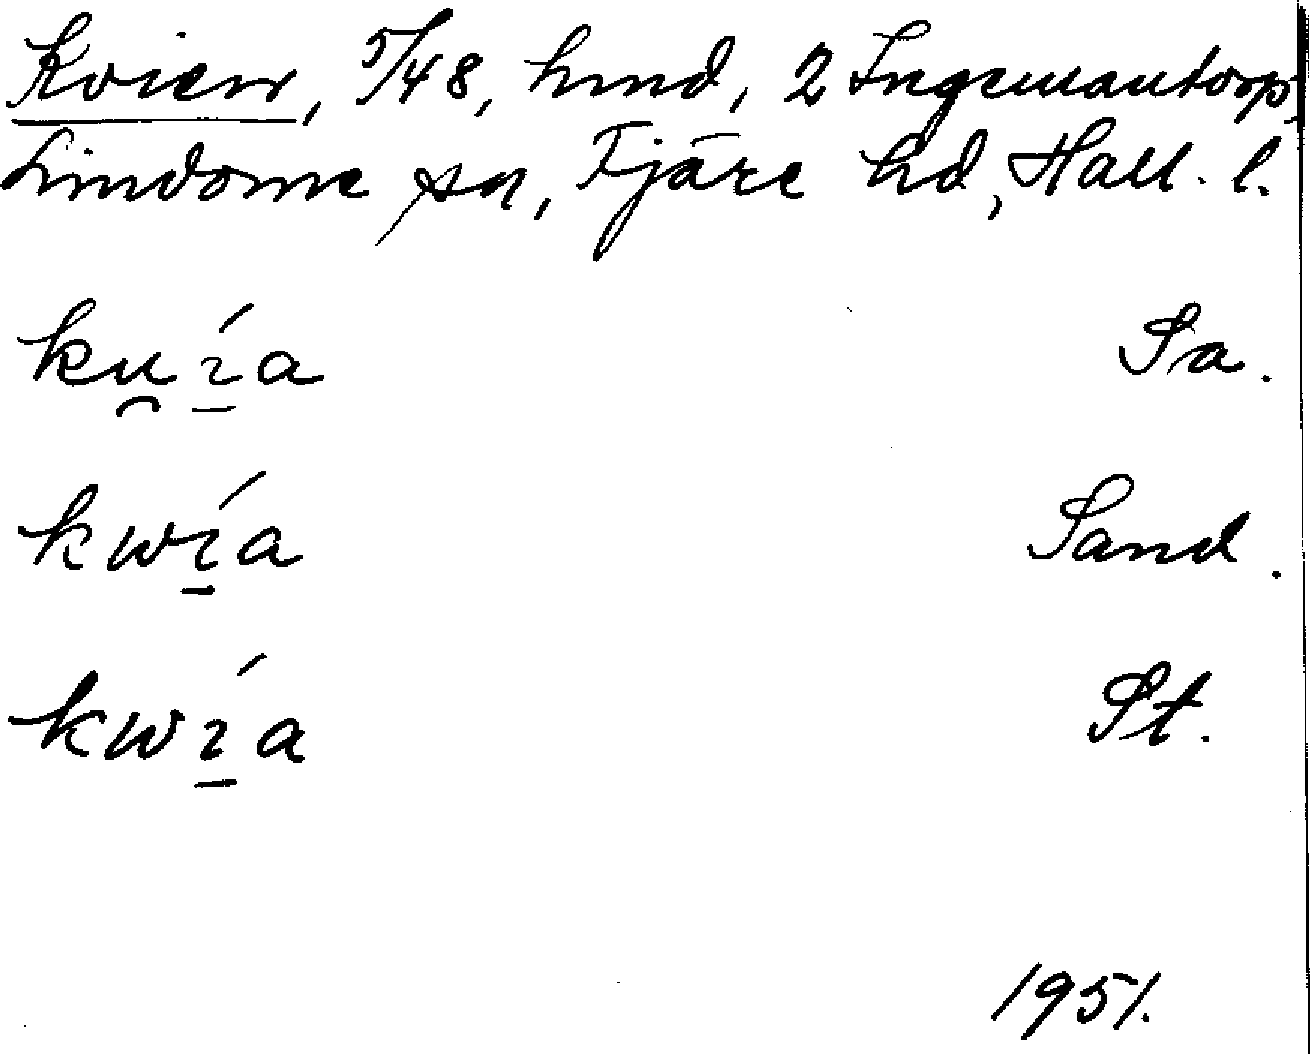 Kvien, 5/48, hmd, 2 Ingemantorp,
Lindome sn, Fjäre hd, Hall. l.
ku̯ı̱́a Sa.
kwı̱́a Sand.
kwı̱́a St.
1951.